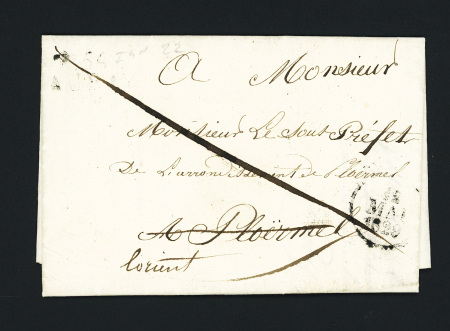 A Monsieur
Monsieur Le Sous Préfet
De L'arrondissement de Ploërmel
A Ploërmel
Lorient
MAI